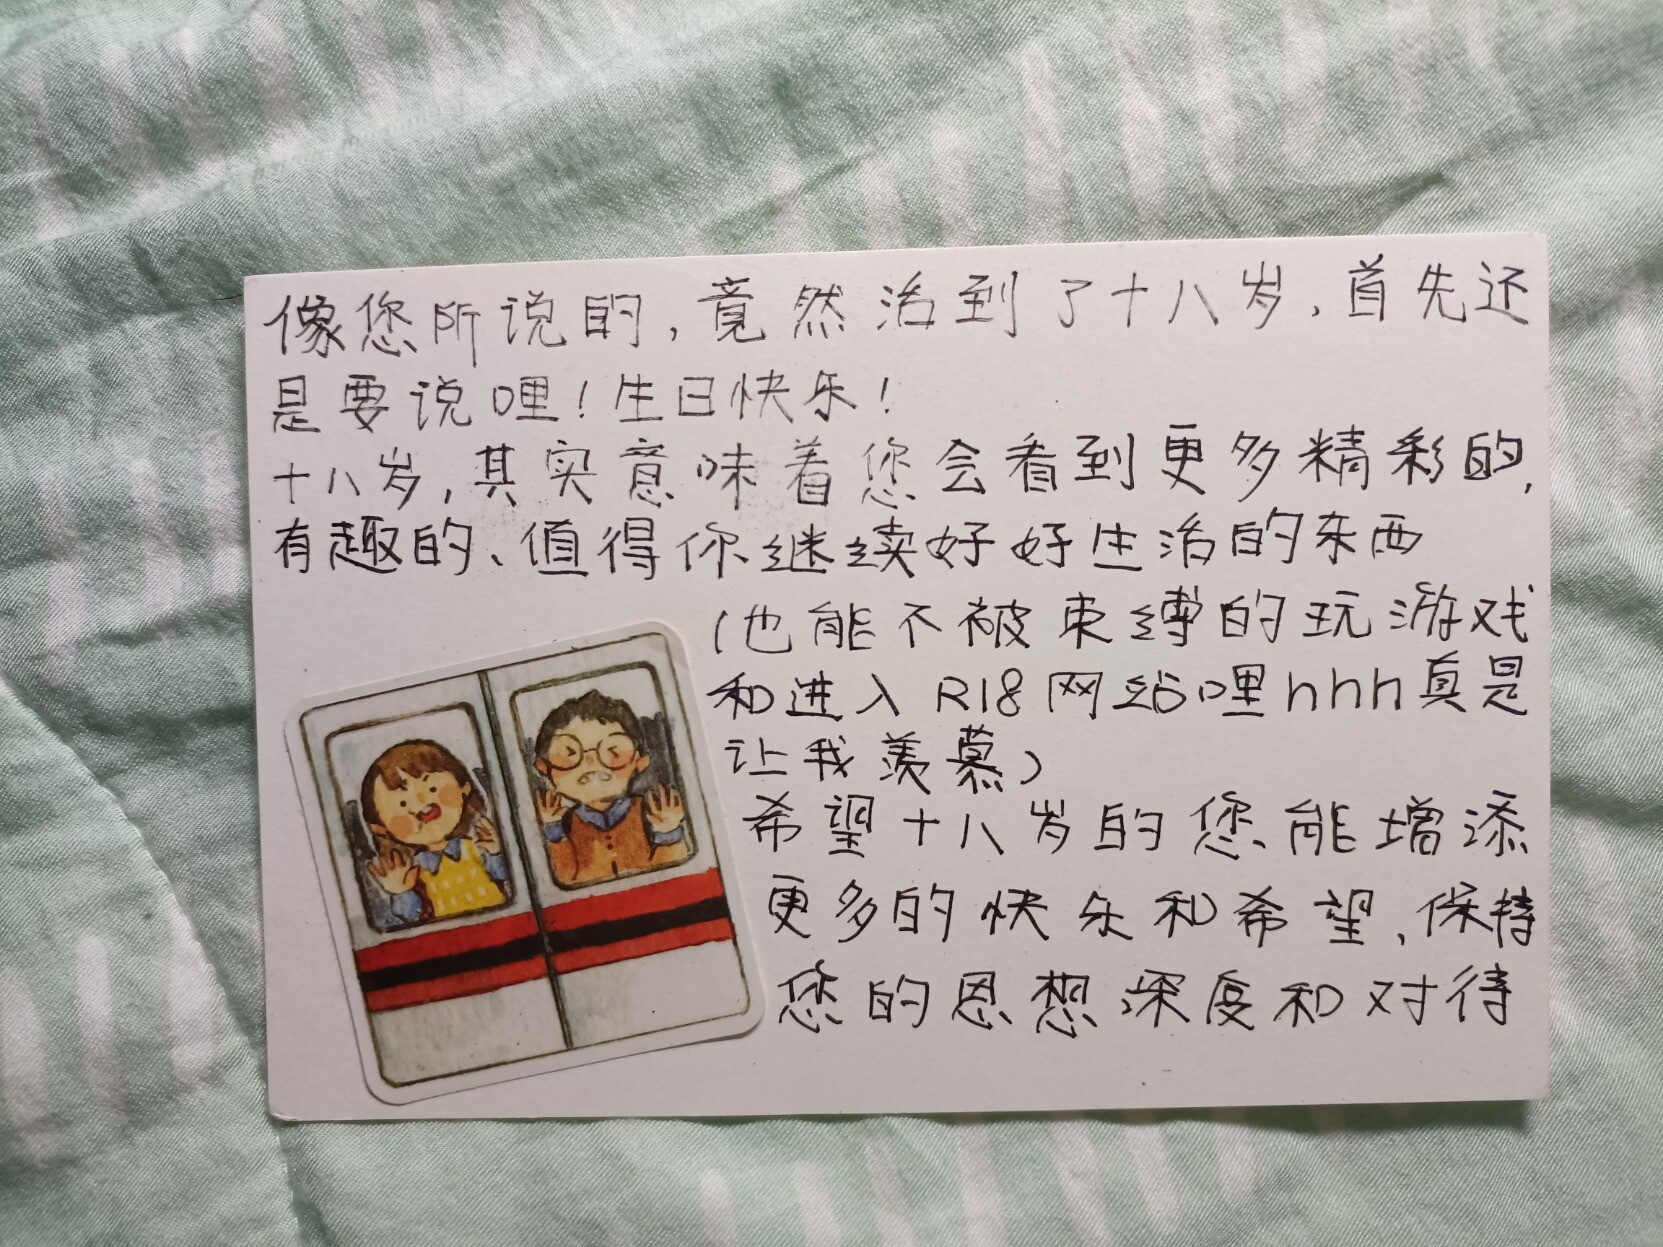 像您所说的，竟然活到了十八岁，首先还
是要说哩！生日快乐！
十八岁，其实意味着您会看到更多精彩的，
有趣的、值得你继续好好生活的东西
（也能不被束缚的玩游戏
和进入R18网站哩hhh真是
让我羡慕）
希望十八岁的您能增添
更多的快乐和希望、保持
您的思想深度和对待